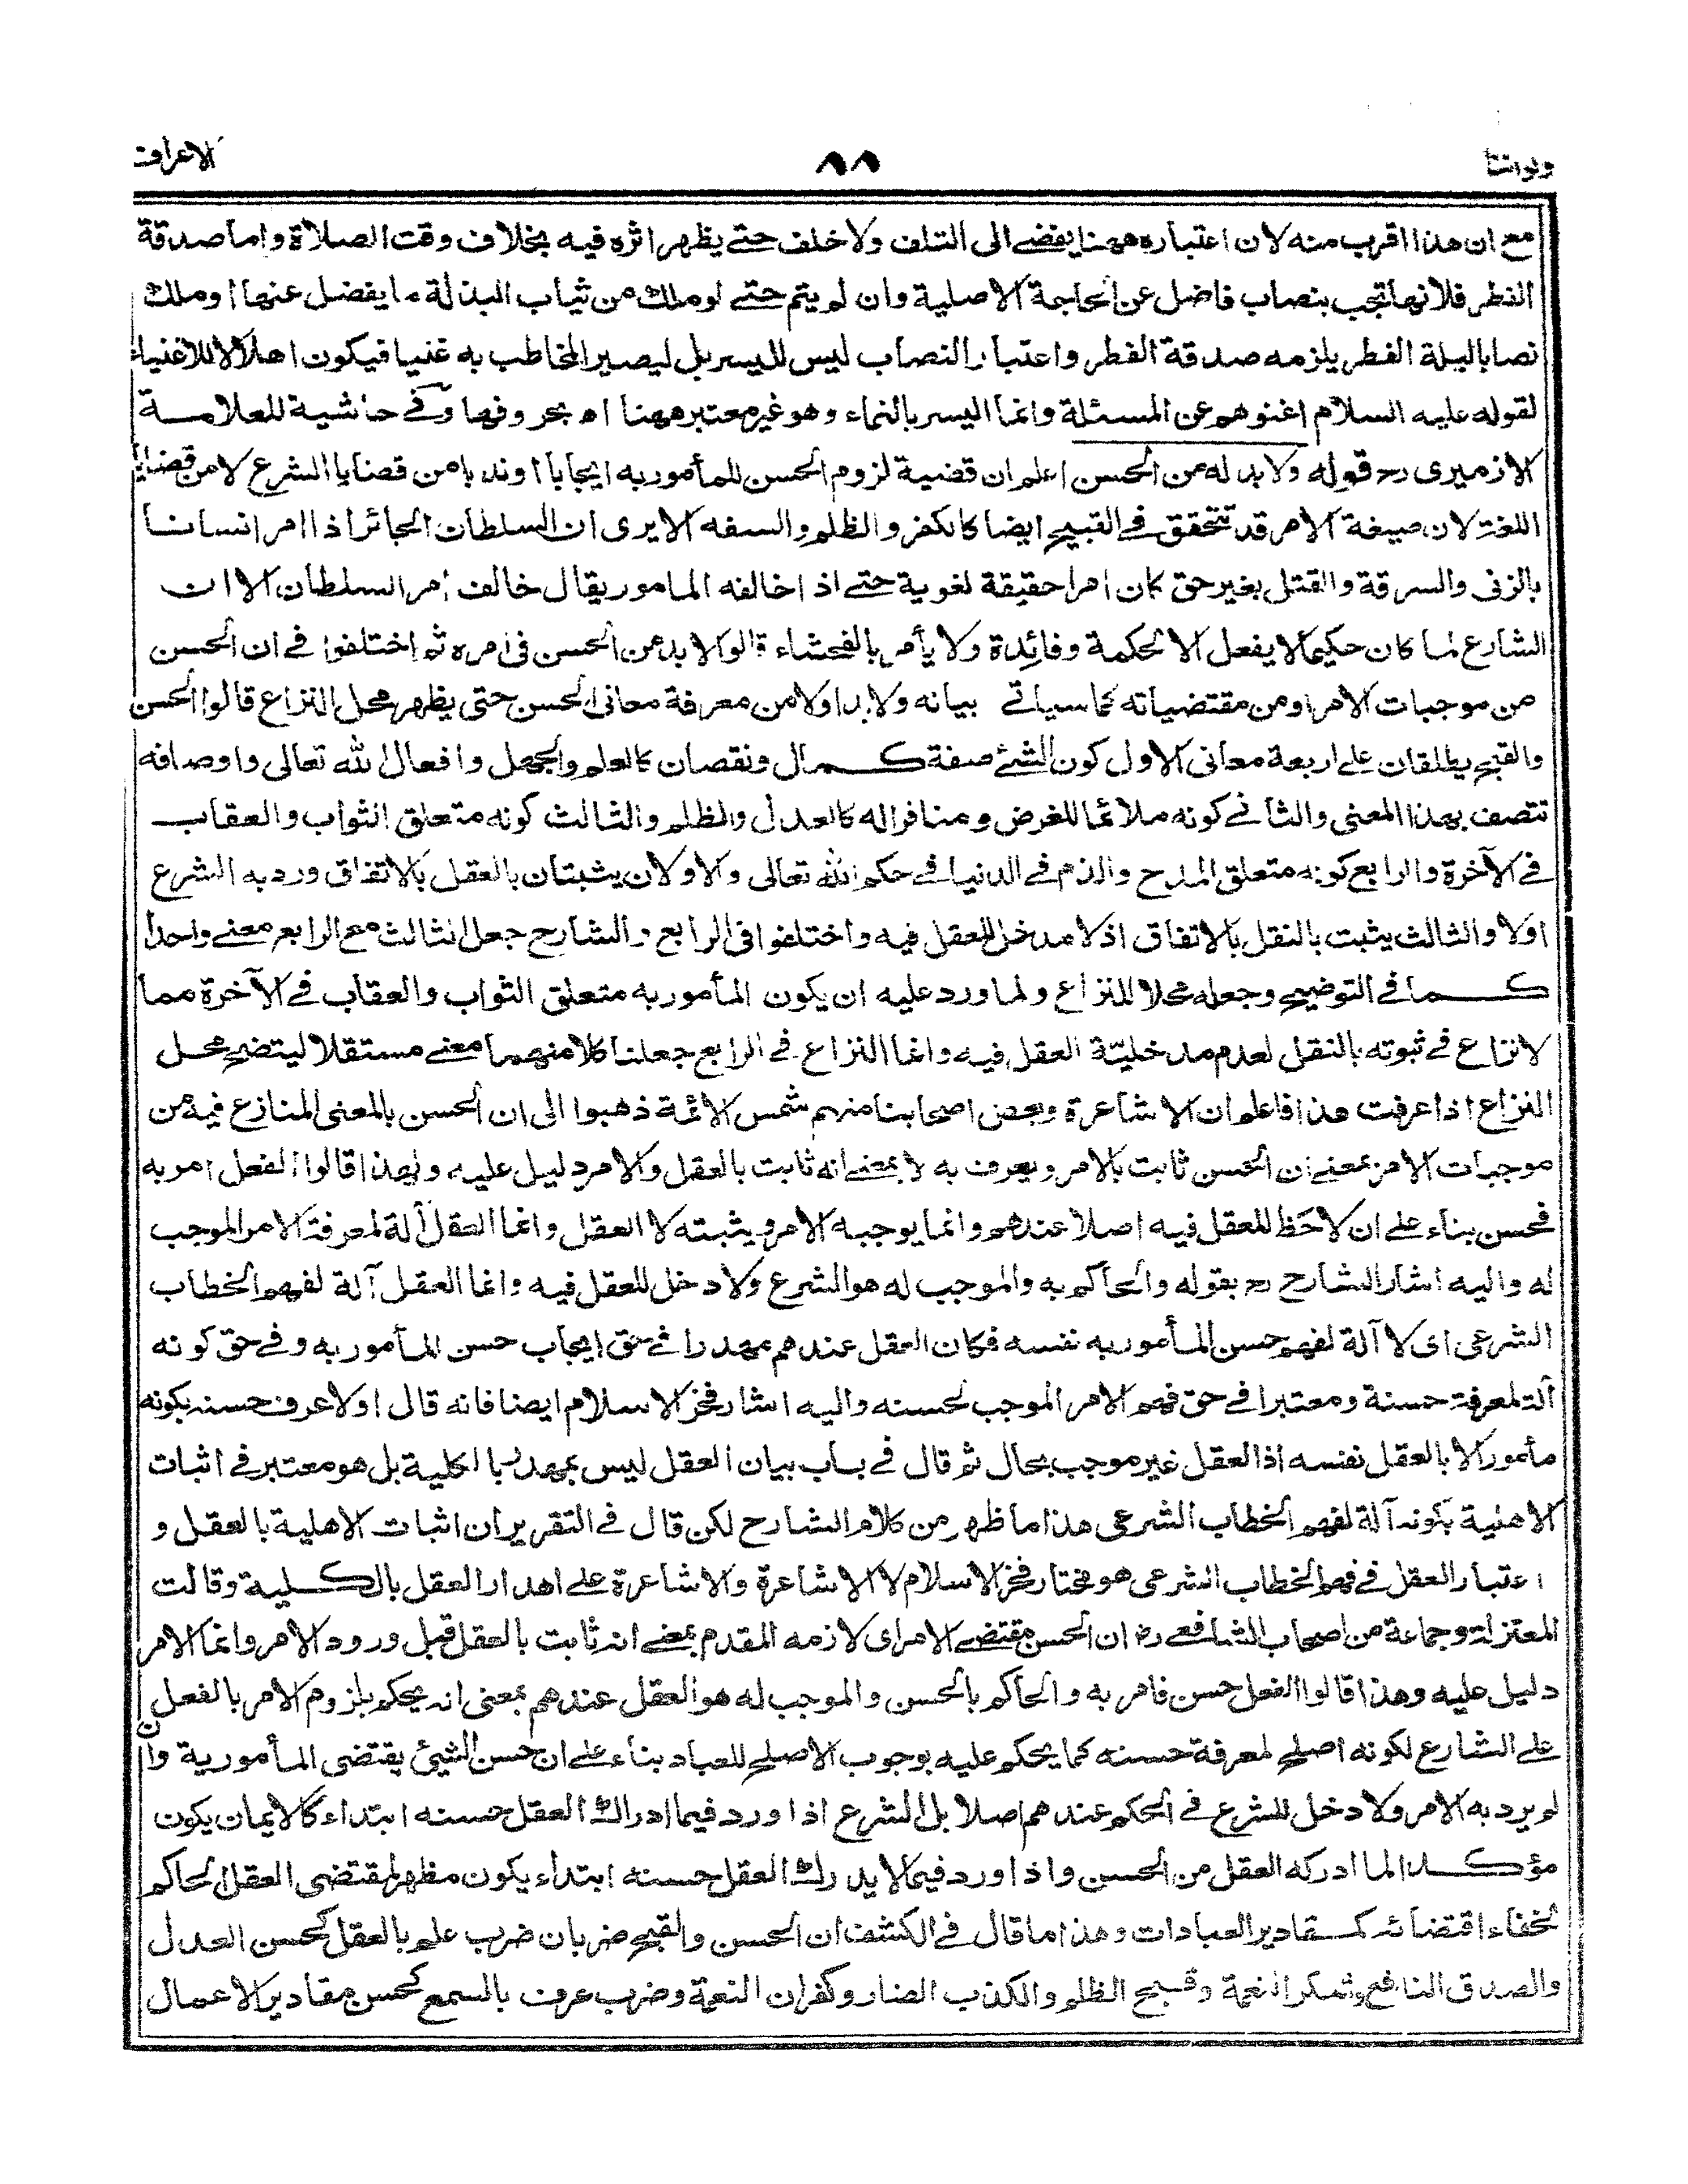 ولواننا ٨٨ الاعراف
مع ان هذا اقرب منه لان اعتباره ههنا يفضے الى التلف ولا خلف حتے يظهر اثره فيه بخلاف وقت الصلاة واما صدقة
الفطر فلانها تجب بنصاب فاضل عن الحاجة الاصلية وان لم يتم حتے لو ملك من ثياب البذلة ما يفضل عنها او ملك
نصابا ليلة الفطر يلزمه صدقة الفطر واعتبار النصاب ليس لليسر بل ليصير المخاطب به غنيا فيكون اهلا للاغنياء
لقوله عليه السلام اغنوهم عن المسئلة وانما اليسر بالنماء وهو غير معتبر ههنا اه بحروفها وفے حاشية للعلامة
الازميرى رح قوله ولا بد له من الحسن اعلم ان قضية لزوم الحسن للمأمور به ايجابا او ندبا من قضايا الشرع لا من قضايا
اللغة لان صيغة الامر قد تتحقق فے القبيح ايضا كالكفر والظلم والسفه الا يرى ان السلطان الجائر اذا امر انسانا
بالزنى والسرقة والقتل بغير حق كان امرا حقيقة لغوية حتے اذا خالفه المامور يقال خالف امر السلطان الا ان
الشارع لما كان حكيما لا يفعل الا لحكمة وفائدة ولا يأمر بالفحشاء قالوا لا بد من الحسن فى امره ثم اختلفوا فے ان الحسن
من موجبات الامر او من مقتضياته كما سياتے بيانه ولا بد اولا من معرفة معانى الحسن حتى يظهر محل النزاع قالوا الحسن
والقبح يطلقان علے اربعة معانى الاول كون الشئ صفة كمال ونقصان كالعلم والجهل وافعال الله تعالى واوصافه
تتصف بهذا المعنى والثانے كونه ملائما للغرض ومنافرا له كالعدل والظلم والثالث كونه متعلق الثواب والعقاب
فے الآخرة والرابع كونه متعلق المدح والذم فے الدنيا فے حكم الله تعالى والاولان يثبتان بالعقل بالاتفاق ورد به الشرع
اولا والثالث يثبت بالنقل بالاتفاق اذ لا مدخل للعقل فيه واختلفوا فى الرابع والشارح جعل الثالث مع الرابع معنے واحدا
كما فے التوضيح وجعله محلا للنزاع ولما ورد عليه ان يكون المأمور به متعلق الثواب والعقاب فے الآخرة مما
لا نزاع فے ثبوته بالنقل لعدم مدخليّة العقل فيه وانما النزاع فے الرابع جعلنا كلا منهما معنے مستقلا ليتضح محل
النزاع اذا عرفت هذا فاعلم ان الاشاعرة وبعض اصحابنا منهم شمس الائمة ذهبوا الى ان الحسن بالمعنى المنازع فيه من
موجبات الامر بمعنے ان الحسن ثابت بالامر ويعرف به لا بمعنے انه ثابت بالعقل والامر دليل عليه ولهذا قالوا الفعل امر به
فحسن بناء علے ان لا حَظ للعقل فيه اصلا عندهم وانما يوجبه الامر ويثبته لا العقل وانما العقل آلة لمعرفة الامر الموجب
له واليه اشار الشارح رح بقوله والحاكم به والموجب له هو الشرع ولا دخل للعقل فيه وانما العقل آلة لفهم الخطاب
الشرعى اى لا آلة لفهم حسن المأمور به نفسه فكان العقل عندهم مهدرا فے حق ايجاب حسن المأمور به وفے حق كونه
آلة لمعرفة حسنة ومعتبرا فے حق فهم الامر الموجب لحسنه واليه اشار فخر الاسلام ايضا فانه قال اولا عرف حسنه بكونه
مأمورا لا بالعقل نفسه اذ العقل غير موجب بحال ثم قال فے باب بيان العقل ليس بمهدر بالكلية بل هو معتبر فے اثبات
الاهلية بكونه آلة لفهم الخطاب الشرعى هذا ما ظهر من كلام الشارح لكن قال فے التقرير ان اثبات الاهلية بالعقل و
اعتبار العقل فے فهم الخطاب الشرعى هو مختار فخر الاسلام لا الاشاعرة والاشاعرة علے اهدار العقل بالكلية وقالت
المعتزلة وجماعة من اصحاب الشافعے رض ان الحسن مقتضے الامر اى لازمه المقدم بمعنے انه ثابت بالعقل قبل ورود الامر وانما الامر
دليل عليه وهذا قالوا الفعل حسن فامر به والحاكم بالحسن والموجب له هو العقل عندهم بمعنى انه يحكم بلزوم الامر بالفعل
علے الشارع لكونه اصلح لمعرفة حسنه كما يحكم عليه بوجوب الاصلح للعباد بناء علے ان حسن الشيئ يقتضى المأمورية وان
لم يرد به الامر ولا دخل للشرع فے الحكم عندهم اصلا بل الشرع اذا ورد فيما ادراك العقل حسنه ابتداء كالايمان يكون
مؤكدا لما ادركه العقل من الحسن واذا ورد فيما لا يدرك العقل حسنه ابتداء يكون مظهرا لمقتضى العقل الحاكم
لخفاء اقتضائه كمقادير العبادات وهذا ما قال فے الكشف ان الحسن والقبح ضربان ضرب علم بالعقل كحسن العدل
والصدق النافع وشكر النعمة وقبح الظلم والكذب الضار وكفران النعمة وضرب عرف بالسمع كحسن مقادير الاعمال